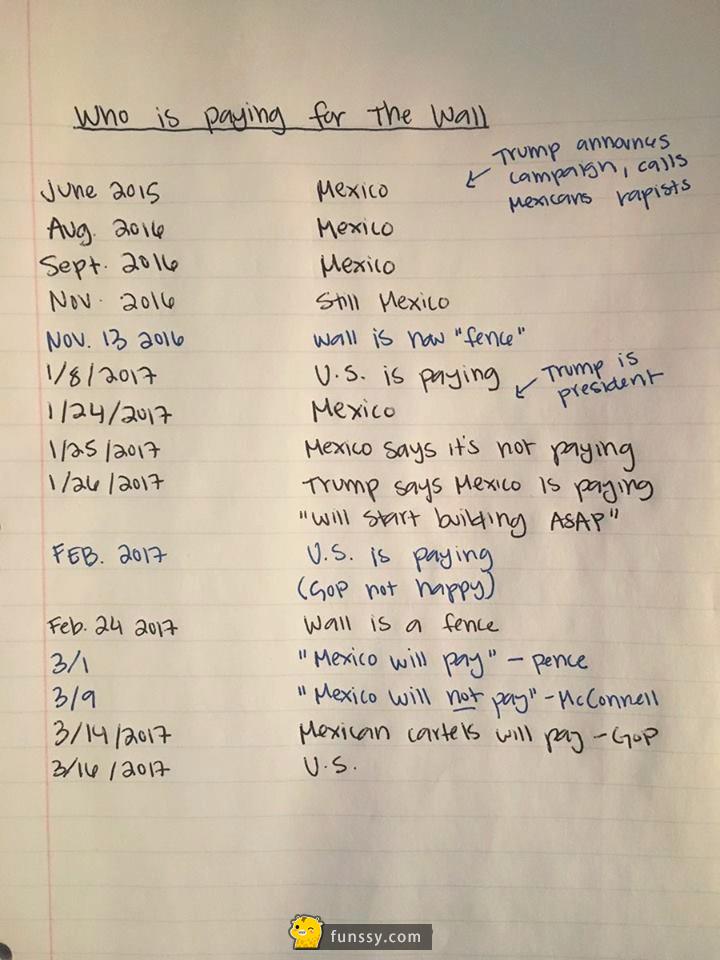 Who is paying for the Wall
Trump announces
campaign, calls
Mexicans rapists
June 2015 Mexico
Aug. 2016 Mexico
Sept. 2016 Mexico
Nov. 2016 Still Mexico
Nov. 13 2016 Wall is now "fence"
1/8/2017 U.S. is paying
Trump is
president
1/24/2017 Mexico
1/25/2017 Mexico says it's not paying
1/26/2017 Trump says Mexico is paying
"will start building ASAP"
FEB. 2017 U.S. is paying
(GOP not happy)
Feb. 24 2017 Wall is a fence
3/1 "Mexico will pay" - pence
3/9 "Mexico will not pay" - McConnell
3/14/2017 Mexican cartels will pay - GOP
3/16/2017 U.S.
funssy.com